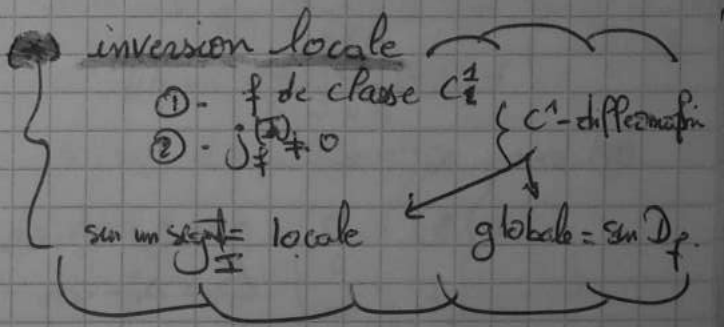 inversion locale
①- f de classe C¹
②- j_f ≠ 0
{ C¹-difféomorphi
sur un segt = locale
I
globale = sur D_f.